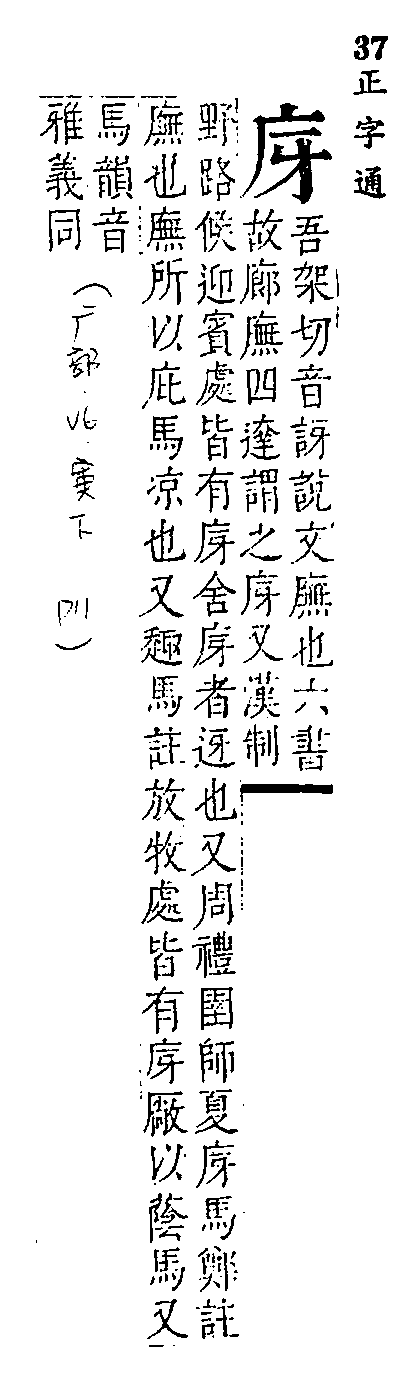 37 正字通
庌
吾架切音訝說文廡也六書
故廊廡四達謂之庌又漢制
野路候迎賓處皆有庌舍庌者迓也又周禮圉師夏庌馬鄭註
廡也廡所以庇馬凉也又趣馬註放牧處皆有庌厰以蔭馬又
馬韻音
雅義同
(广部·寅下 四)